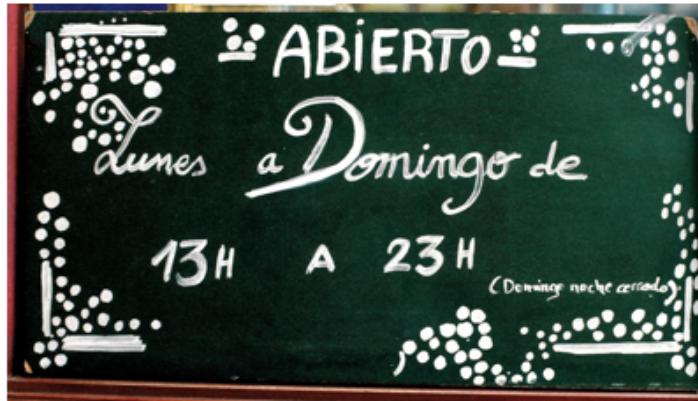 ABIERTO
Lunes a Domingo de
13H A 23H
(Domingo noche cerrado)